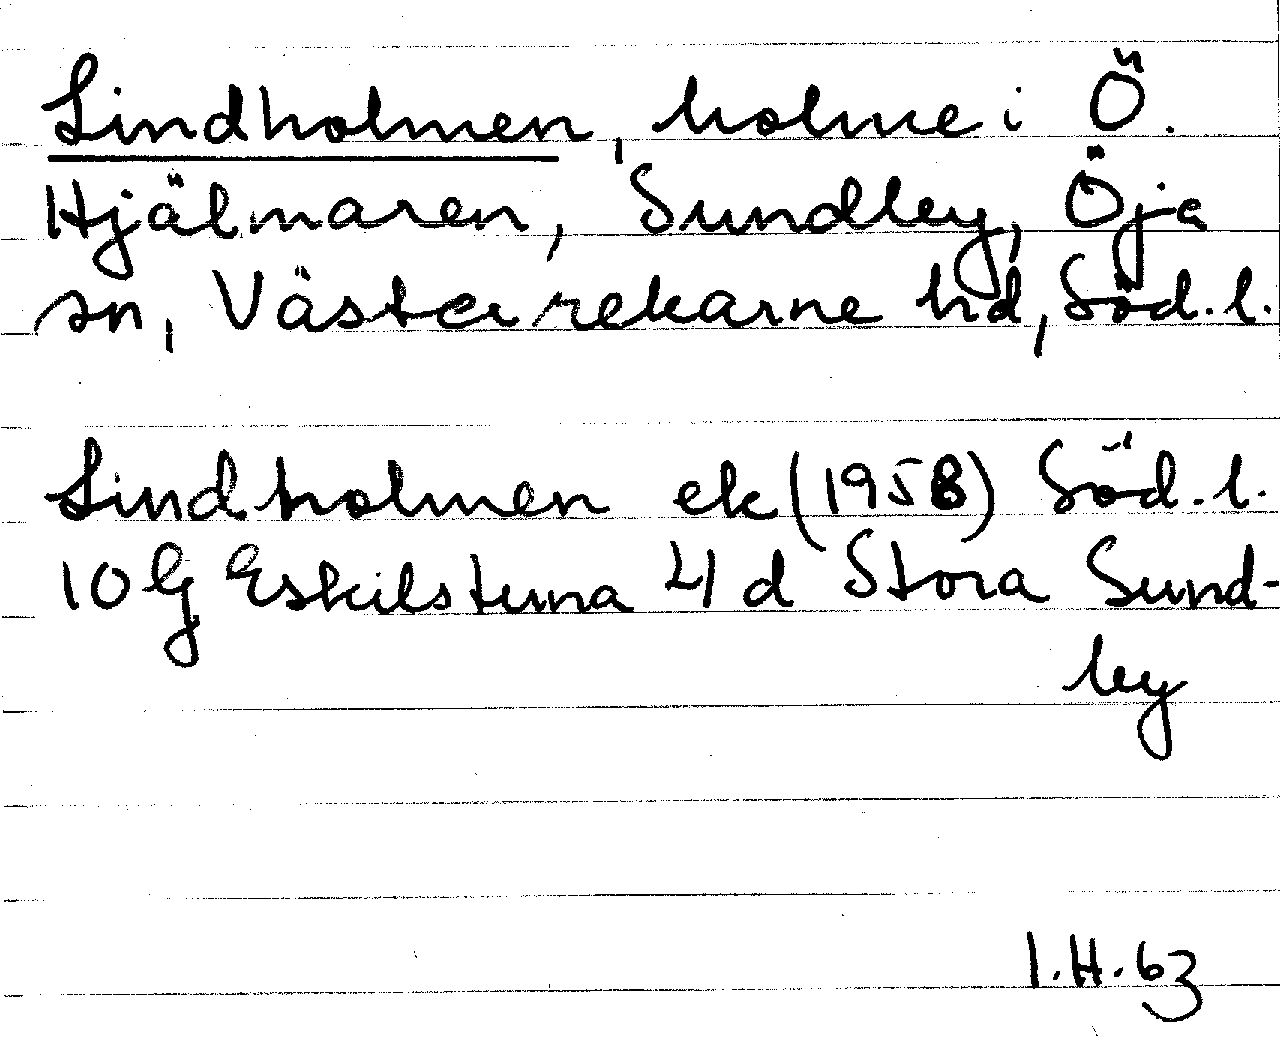 Lindholmen, holme i Ö.
Hjälmaren, Sundby, Öja
sn, Västerrekarne hd, Söd. l.
Lindholmen ek (1958) Söd. l.
10G Eskilstuna 4d Stora Sund-
by
I.H. 63